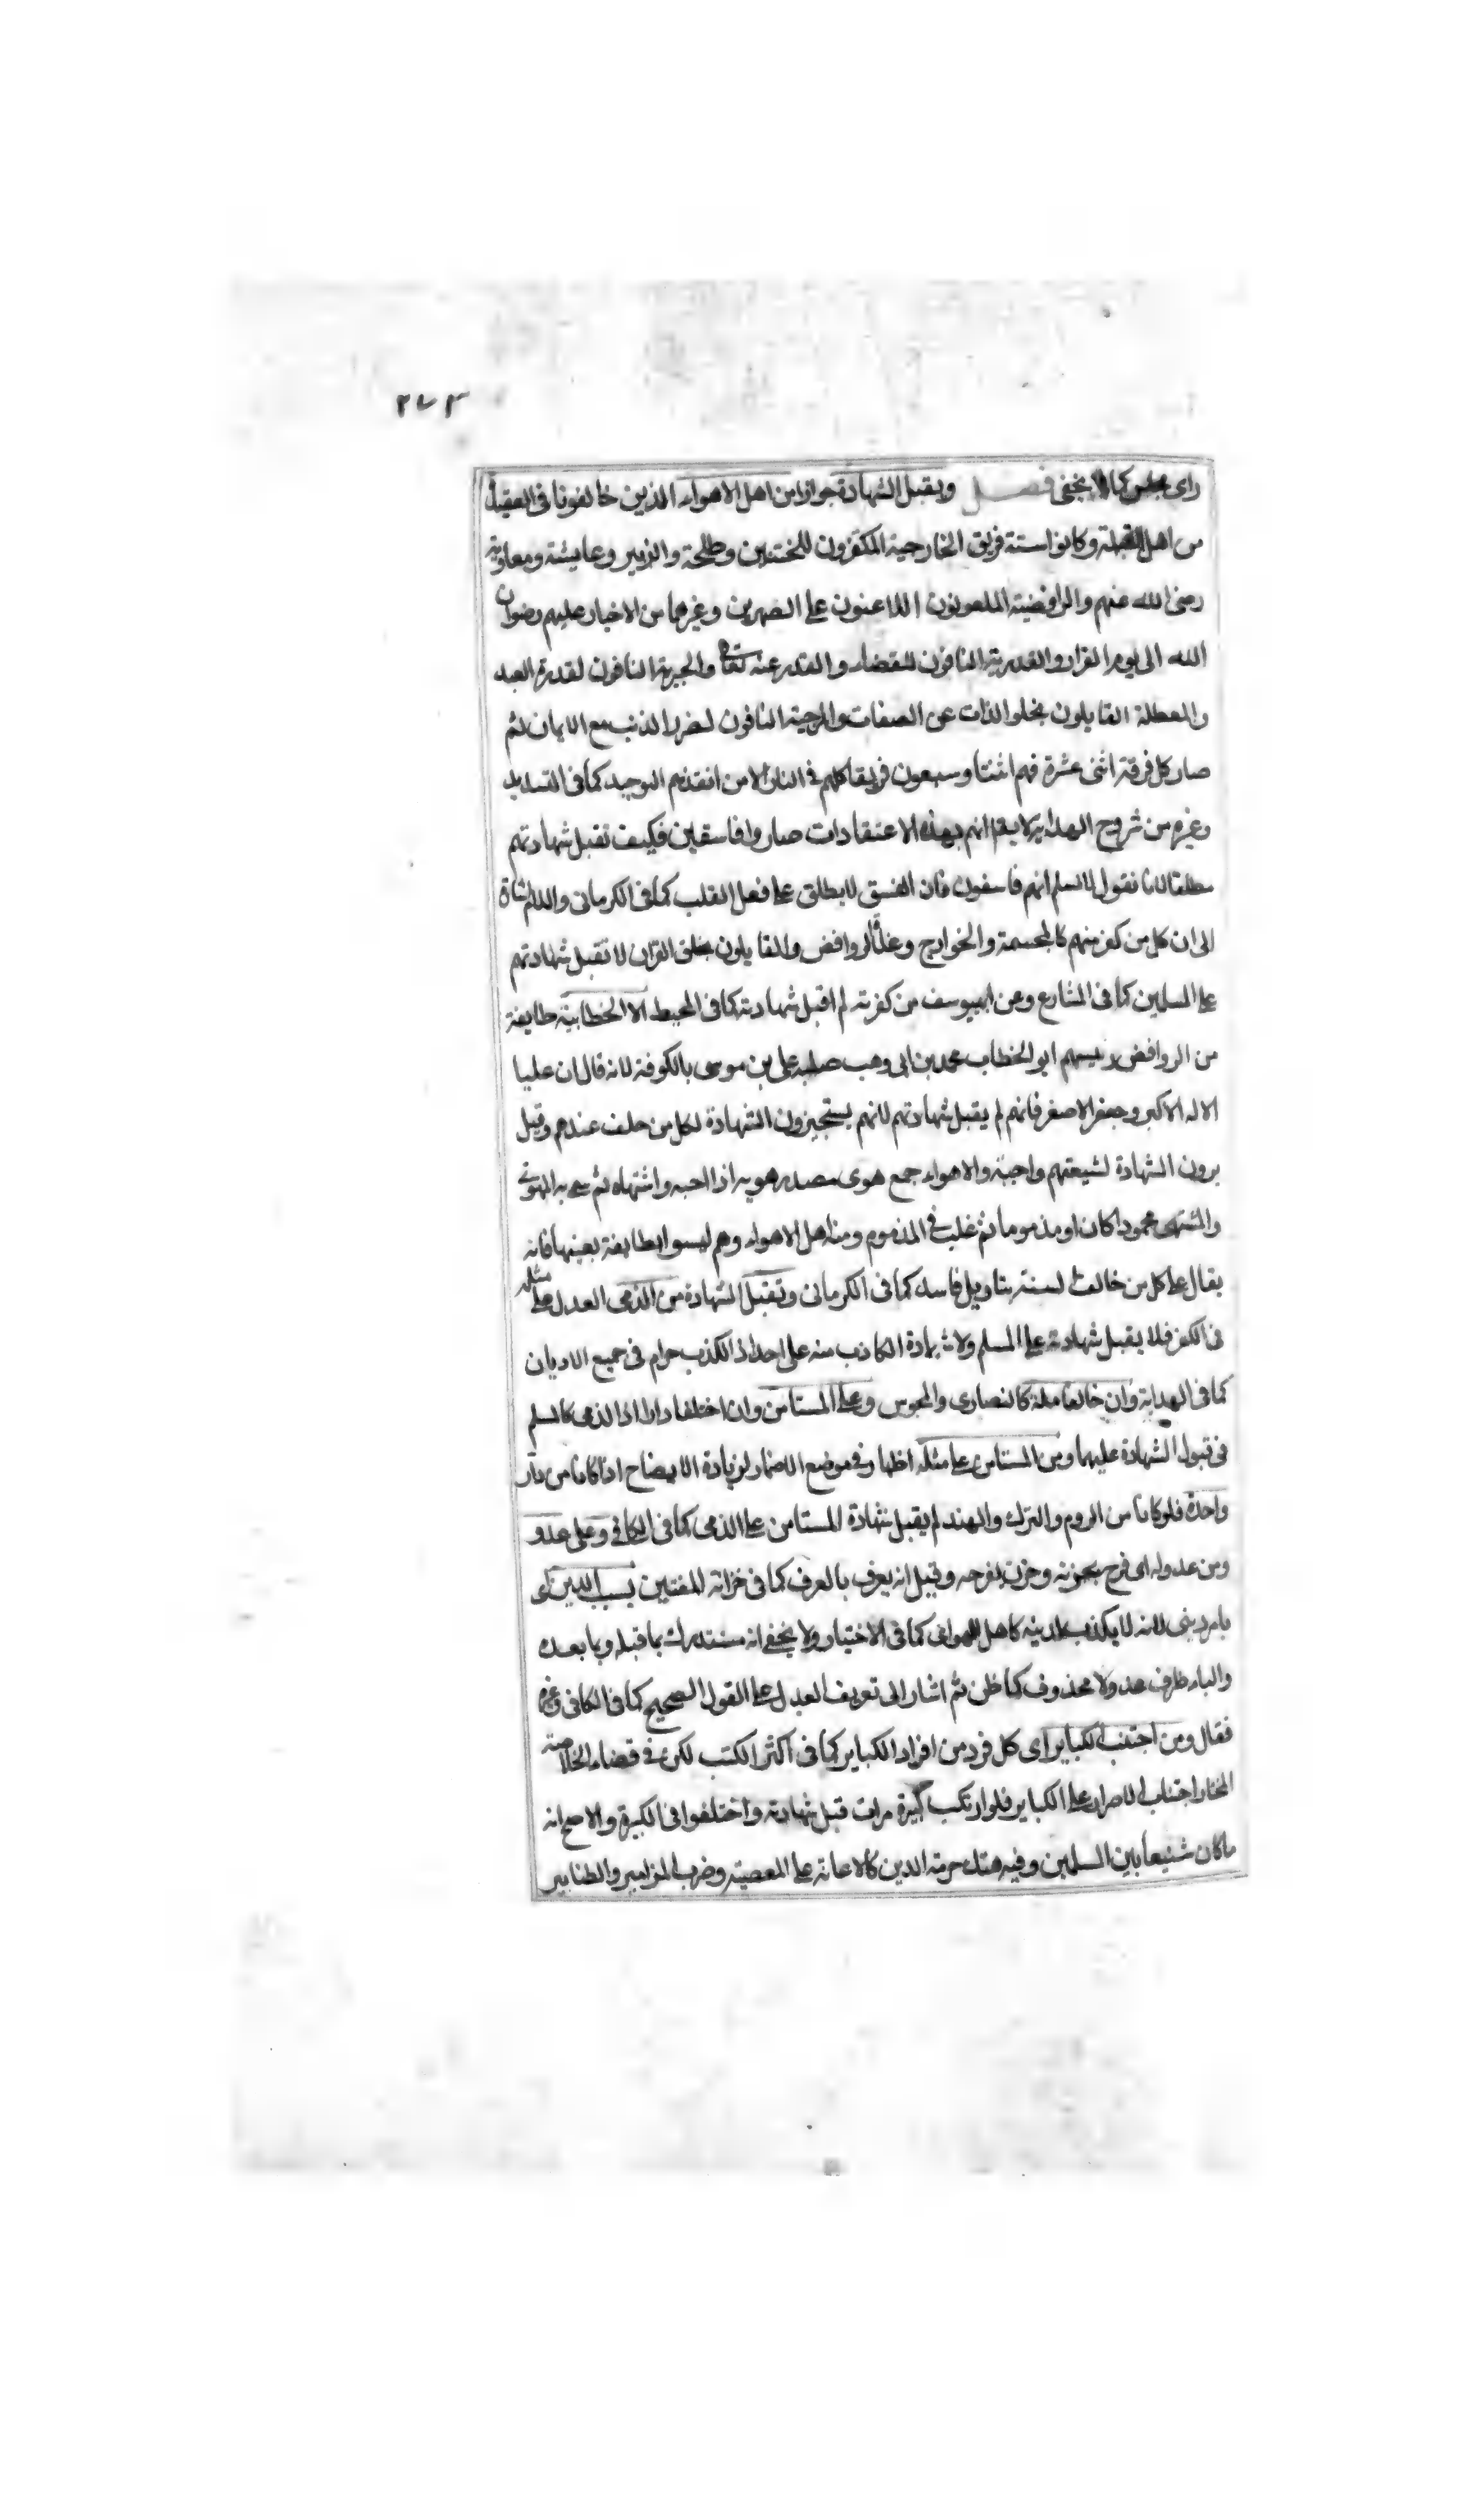 ٢٧٣
راى مجلس كما لا يخفى فصل ويقبل الشهادة جوازا من اهل الاهواء الذين خالفونا فى العقيدة
من اهل القبلة وكانوا ستة فريق الخارجية المكفرون للختنين وطلحة والزبير وعايشة ومعاوية
رضى الله عنهم والرافضية الملعونون اللاعنون على الصهرين وغيرهما من الاخيار عليهم رضوان
الله الى يوم القرار والقدرية النافون للقضاء والقدر عنه تعالى والجبرية النافون لقدرة العبد
والمعطلة القايلون بخلو الذات عن الصفات والمرجية النافون لضرر الذنب مع الايمان ثم
صار كل فرقة اثنى عشرة فهم اثنتا وسبعون فريقا كلهم فى النار الا من انقذهم التوحيد كما فى التسديد
وغيره من شروح الهداية لا يقال انهم بهذه الاعتقادات صاروا فاسقين فكيف تقبل شهادتهم
مطلقا لانا نقول لا نسلم انهم فاسقون فان الفسق لا يطلق على فعل القلب كما فى الكرمانى واللام اشارة
الى ان كل من كفر منهم كالمجسمة والخوارج وغلاة الروافض والقايلون بخلق القران لا تقبل شهادتهم
على المسلمين كما فى المشارع وعن ابى يوسف من كفرته لم اقبل شهادته كما فى المحيط الا الخطابية طايفة
من الروافض رييسهم ابو الخطاب محمد بن ابى وهب صلبه على بن موسى بالكوفة لانه قال ان عليا
الاله الاكبر وجعفر الاصغر فانهم لم يقبل شهادتهم لانهم يستجيزون الشهادة لكل من حلف عندهم وقيل
يرون الشهادة لشيعتهم واجبة والاهواء جمع هوى مصدر هويه اذا احبه واشتهاه ثم سمى به المهوى
والمشتهى محمودا كان او مذموما ثم غلب فى المذموم ومنه اهل الاهواء وهم ليسوا بطايفة بعينها فانه
يقال على كل من خالف السنة بتاويل فاسد كما فى الكرمانى وتقبل الشهادة من الذمى العدل على مثله
فى الكفر فلا يقبل شهادته على المسلم ولا شهادة الكاذب منه على احد اذ الكذب حرام فى جميع الاديان
كما فى الهداية وان خالفا ملة كالنصارى والمجوس وعلى المستامن وان اختلفا دارا اذ الذمى كالمسلم
فى قبول الشهادة عليهما ومن المستامن على مثله اظهار فى موضع الاضمار لزيادة الايضاح اذا كانا من دار
واحدة فلو كانا من الروم والترك والهند لم يقبل شهادة المستامن على الذمى كما فى الكافى وعلى عدو
ومن عدو له اى فرح بحزنه وحزن بفرحه وقيل انه يعرف بالعرف كما فى خزانة المفتين بسبب الدين اى
بامر دينى لانه لا يكذب لدينه كاهل الهواى كما فى الاختيار ولا يخفى انه مستدرك بما قبله وبما بعده
والباء ظرف عدو لا محذوف كما ظن ثم اشار الى تعريف العدل على القول الصحيح كما فى الكافى وغيره
فقال ومن اجتنب الكباير اى كل فرد من افراد الكباير كما فى اكثر الكتب لكن فى قضاء الخلاصة
المختار اجتناب الاصرار على الكباير فلو ارتكب كبيرة مرات قبل شهادته واختلفوا فى الكبيرة والاصح انه
ما كان شنيعا بين المسلمين وفيه هتك حرمة الدين كالاعانة على المعصية وضرب المزامير والطنابير